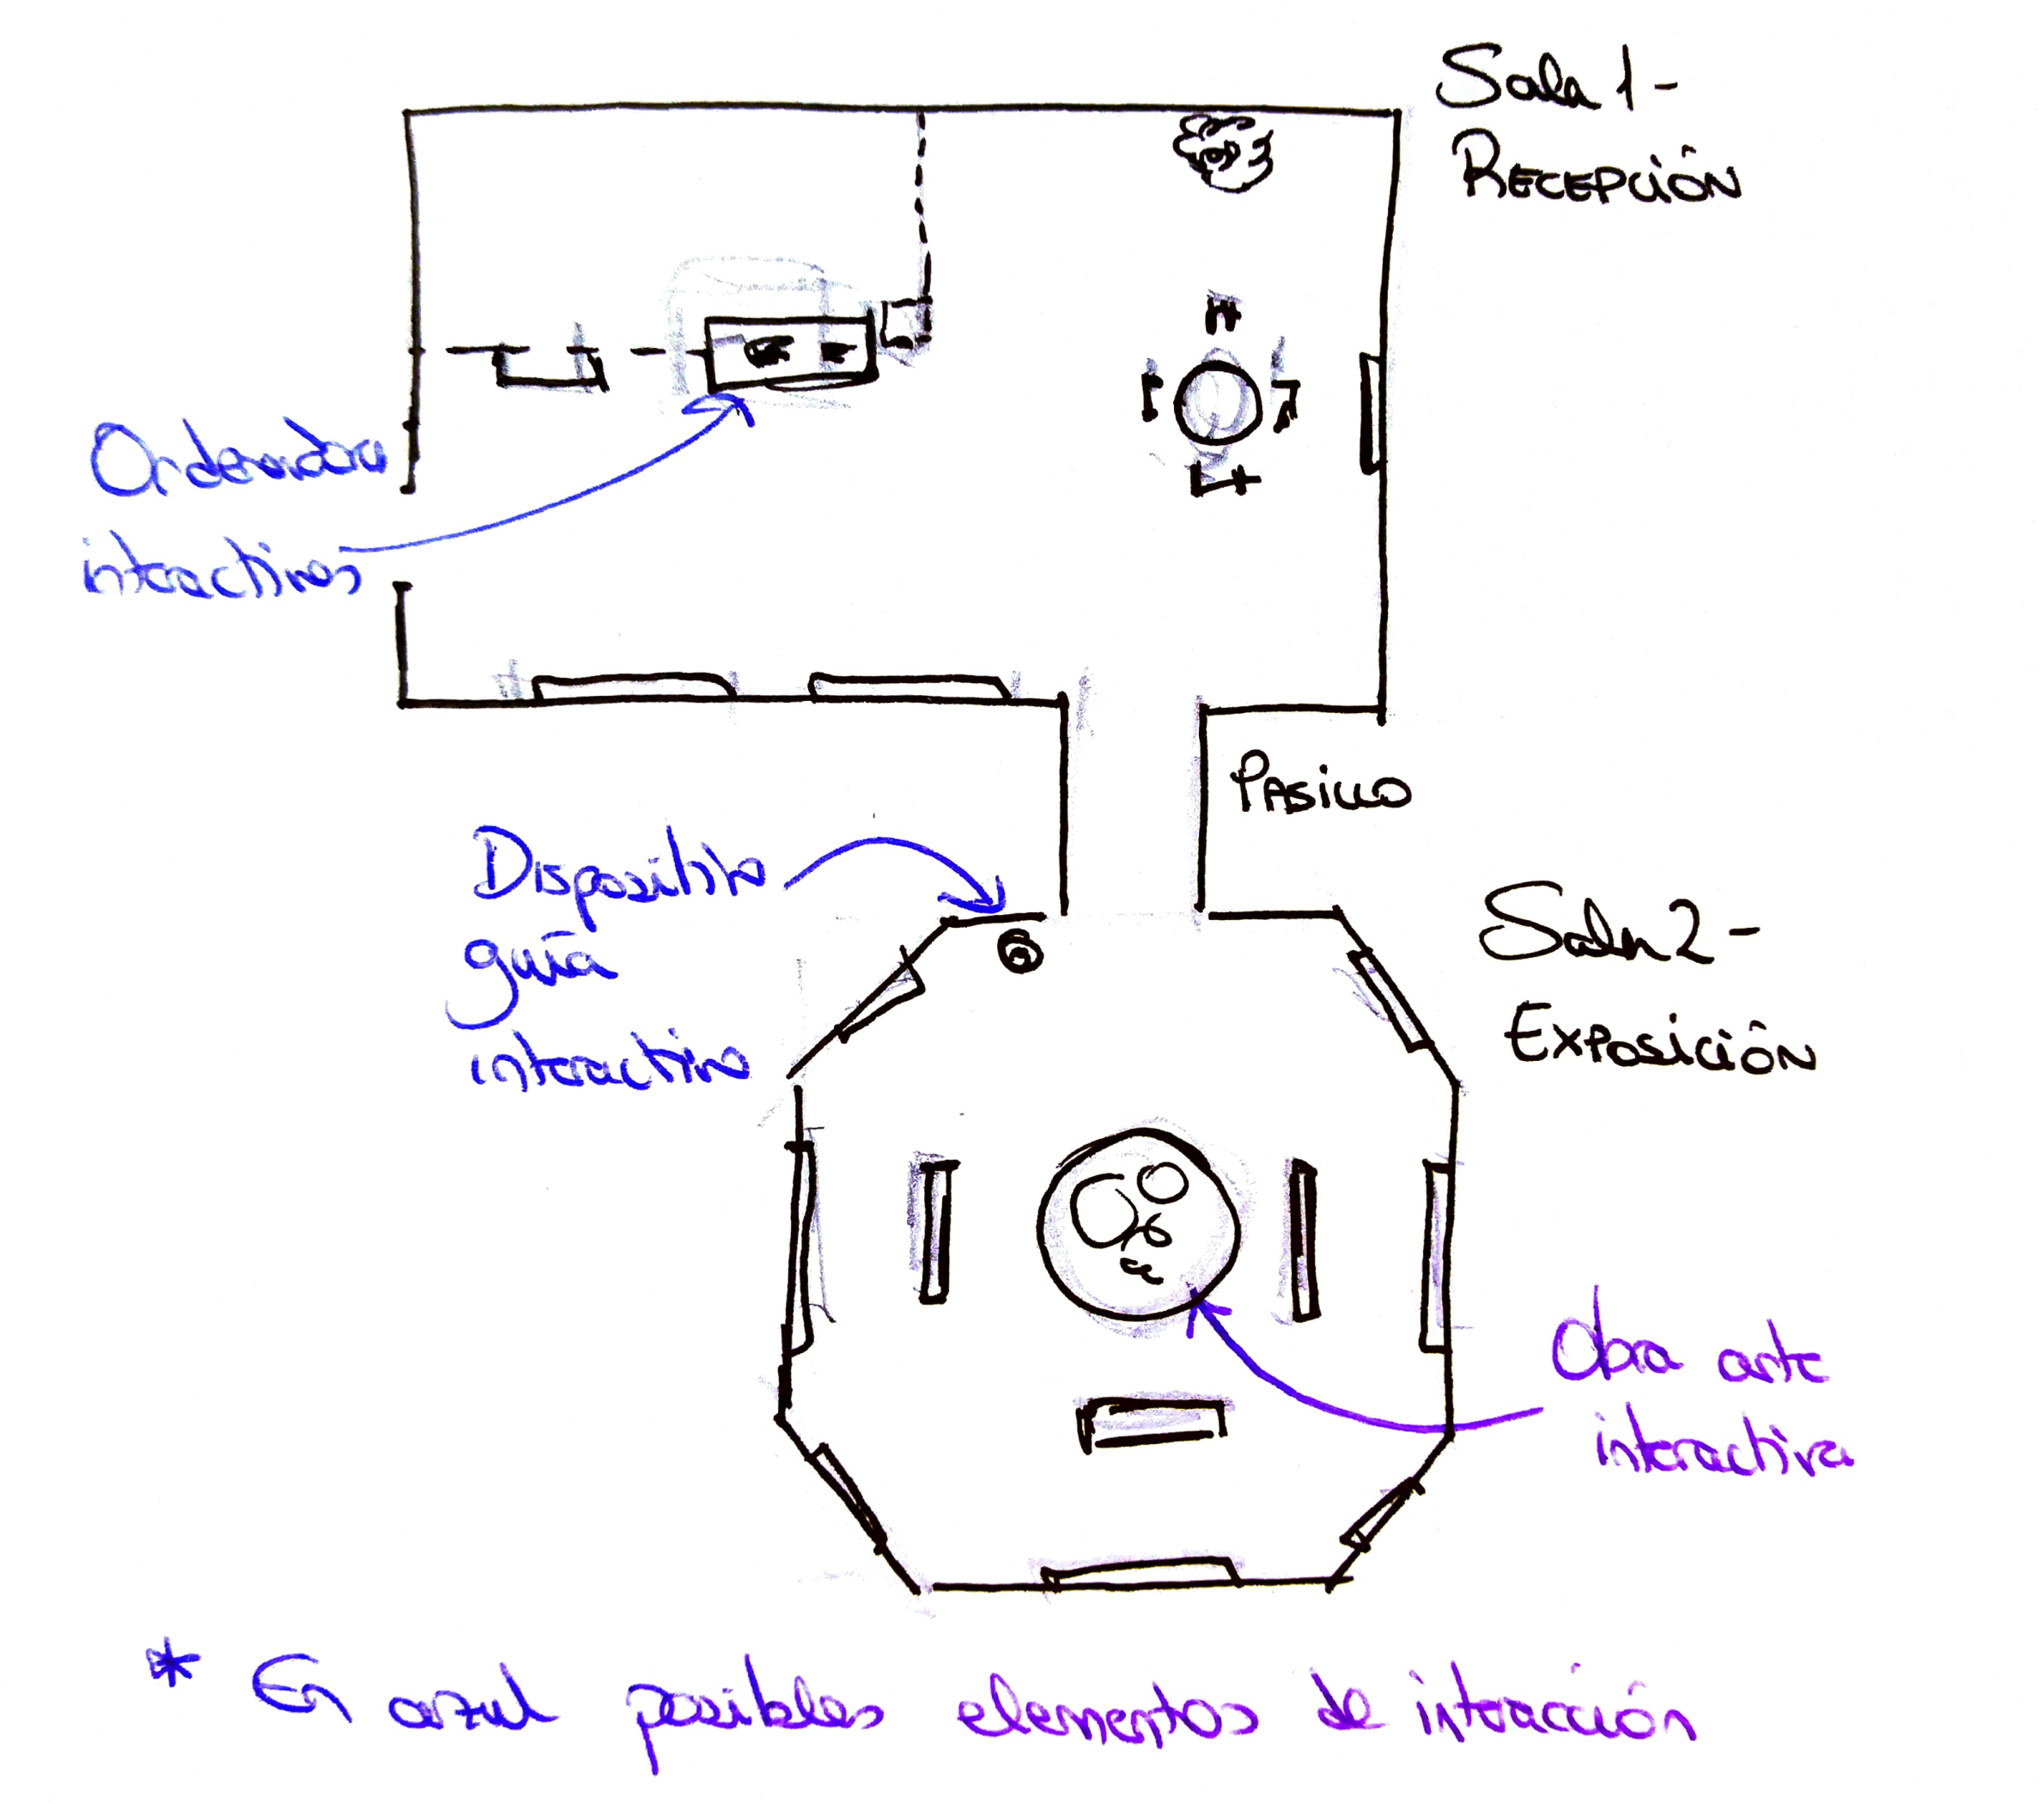 Sala 1 -
RECEPCIÓN
Ordenadores
interactivos
PASILLO
Dispositivo
guía
interactivo
Sala 2 -
EXPOSICIÓN
Obra arte
interactiva
* En azul posibles elementos de interacción